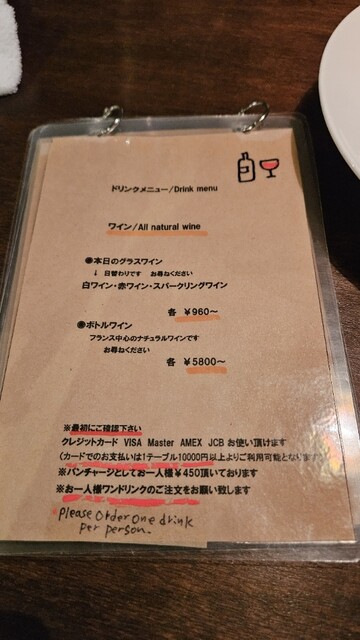 ドリンクメニュー/Drink menu
ワイン/All natural wine
◉本日のグラスワイン
↓ 日替わりです お尋ねください
白ワイン・赤ワイン・スパークリングワイン
各 ¥960～
◉ボトルワイン
フランス中心のナチュラルワインです
お尋ねください
各 ¥5800～
※最初にご確認下さい
クレジットカード VISA Master AMEX JCB お使い頂けます
(カードでのお支払いは1テーブル10000円以上よりご利用可能となります
※パンチャージとしてお一人様¥450頂いております
※お一人様ワンドリンクのご注文をお願い致します
*please order one drink
per person.